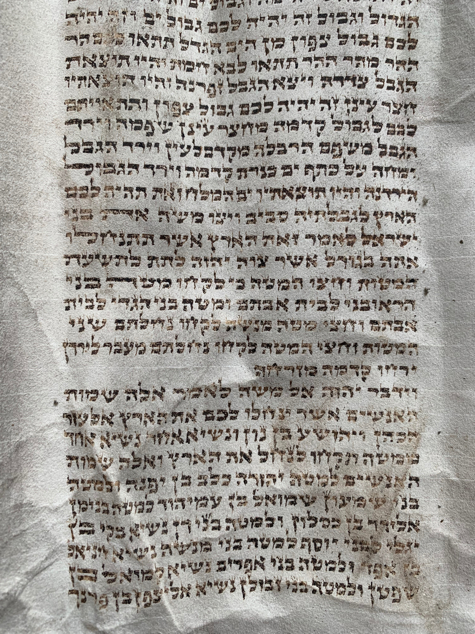 הגדול וגבול זה יהיה לכם גבול ים וזה יהיה
לכם גבול צפון מן הים הגדל תתאו לכם הר
ההר מהר ההר תתאו לבא חמת והיו תוצאת
הגבל צדדה ויצא הגבל זפרנה והיו תוצאתיו
חצר עינן זה יהיה לכם גבול צפון והתאויתם
לכם לגבול קדמה מחצר עינן שפמה וירד
הגבל משפם הרבלה מקדם לעין וירד הגבל
ומחה על כתף ים כנרת קדמה וירד הגבול
הירדנה והיו תוצאתיו ים המלח זאת תהיה לכם
הארץ לגבלתיה סביב ויצו משה את בני
ישראל לאמר זאת הארץ אשר תתנחלו
אתה בגורל אשר צוה יהוה לתת לתשעת
המטות וחצי המטה כי לקחו מטה בני
הראובני לבית אבתם ומטה בני הגדי לבית
אבתם וחצי מטה מנשה לקחו נחלתם שני
המטות וחצי המטה לקחו נחלתם מעבר לירדן
ירחו קדמה מזרחה
וידבר יהוה אל משה לאמר אלה שמות
האנשים אשר ינחלו לכם את הארץ אלעזר
הכהן ויהושע בן נון ונשיא אחד נשיא אחד
ממטה תקחו לנחל את הארץ ואלה שמות
האנשים למטה יהודה כלב בן יפנה ולמטה
בני שמעון שמואל בן עמיהוד למטה בנימן
אלידד בן כסלון ולמטה בני דן נשיא בקי בן
יגלי לבני יוסף למטה בני מנשה נשיא חניאל
בן אפד ולמטה בני אפרים נשיא קמואל בן
שפטן ולמטה בני זבולן נשיא אליצפן בן פרנך